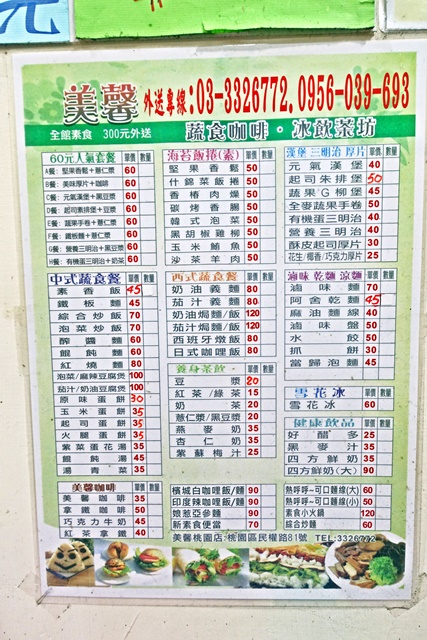 美馨 外送專線:03-3326772.0956-039-693
全館素食 300元外送 蔬食咖啡·冰飲茶坊
60元人氣套餐 單價 數量
A餐: 堅果香鬆+薏仁漿 60
B餐: 美味厚片+咖啡 60
C餐: 元氣漢堡+黑豆漿 60
D餐: 起司素排堡+豆漿 60
E餐: 蔬果手卷+薏仁漿 60
F餐: 鐵板麵+薏仁漿 60
G餐: 營養三明治+黑豆漿 60
H餐: 有機蛋三明治+奶茶 60
海苔飯捲(素) 單價 數量
堅果香鬆 50
什錦菜飯捲 50
香椿肉燥 50
碳烤香腸 50
韓式泡菜 50
黑胡椒雞柳 50
玉米鮪魚 50
沙茶羊肉 50
漢堡 三明治 厚片 單價 數量
元氣漢堡 40
起司朱排堡 50
蔬果G柳堡 45
全麥蔬菜手卷 50
有機蛋三明治 40
營養三明治 40
酥皮起司厚片 30
花生/椰香/巧克力厚片 25
中式蔬食餐 單價 數量
素香飯 45
鐵板麵 45
綜合炒飯 70
泡菜炒飯 70
酢醬麵 60
餛飩麵 60
紅燒麵 80
泡菜/麻辣豆腐煲 100
茄汁/奶油豆腐煲 100
原味蛋餅 30
玉米蛋餅 35
起司蛋餅 35
火腿蛋餅 35
紫菜蛋花湯 45
餛飩湯 50
燙青菜 35
西式蔬食餐 單價 數量
奶油義麵 80
茄汁義麵 80
奶油焗麵/飯 120
茄汁焗麵/飯 120
西班牙燉飯 80
日式咖哩飯 80
養身茶飲 單價 數量
豆漿 20
紅茶/綠茶 15
奶茶 20
薏仁漿/黑豆漿 20
燕麥奶 35
杏仁奶 35
紫蘇梅汁 25
滷味 乾麵 涼麵 單價 數量
滷味麵 70
阿舍乾麵 45
麻油麵線 40
滷味盤 50
水餃 50
抓餅 30
當歸泡麵 45
雪花冰 單價 數量
雪花冰 60
健康飲品 單價 數量
好醋多 25
黑麥汁 35
四方鮮奶 35
四方鮮奶(大) 90
美馨咖啡 單價 數量
美馨咖啡 35
拿鐵咖啡 50
巧克力牛奶 45
紅茶拿鐵 40
檳城白咖哩飯/麵 90
印度辣咖哩飯/麵 90
娘惹亞參麵 90
新素食便當 70
熱呼呼~可口麵線(大) 60
熱呼呼~可口麵線(小) 50
素食小火鍋 120
綜合炒麵 60
美馨桃園店:桃園區民權路81號 TEL:3326772